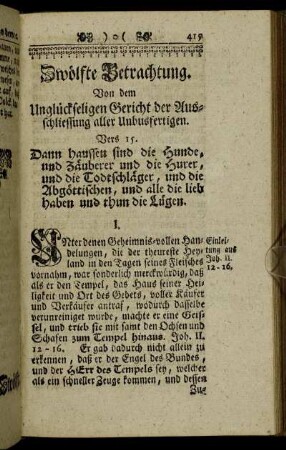 ) o ( 419
Zwölfte Betrachtung.
Von dem
Unglückseligen Gericht der Aus-
schliessung aller Unbusfertigen.
Vers 15.
Dann haussen sind die Hunde,
und Zäuberer und die Hurer,
und die Todtschläger, und die
Abgöttischen, und alle die lieb
haben und thun die Lügen.
I.
UNter denen Geheimnis-vollen Han-
delungen, die der theureste Hey-
land in den Tagen seines Fleisches
vornahm, war sonderlich merckwürdig, daß
als er den Tempel, das Haus seiner Hei-
ligkeit und Ort des Gebets, voller Käufer
und Verkäufer antraf, wodurch dasselbe
verunreiniget wurde, machte er eine Geis-
sel, und trieb sie mit samt den Ochsen und
Schafen zum Tempel hinaus. Joh. II.
12-16. Er gab dadurch nicht allein zu
erkennen, daß er der Engel des Bundes,
und der HErr des Tempels sey, welcher
als ein schneller Zeuge kommen, und dessen
Zug
Einlei-
tung aus
Joh. II.
12-16.